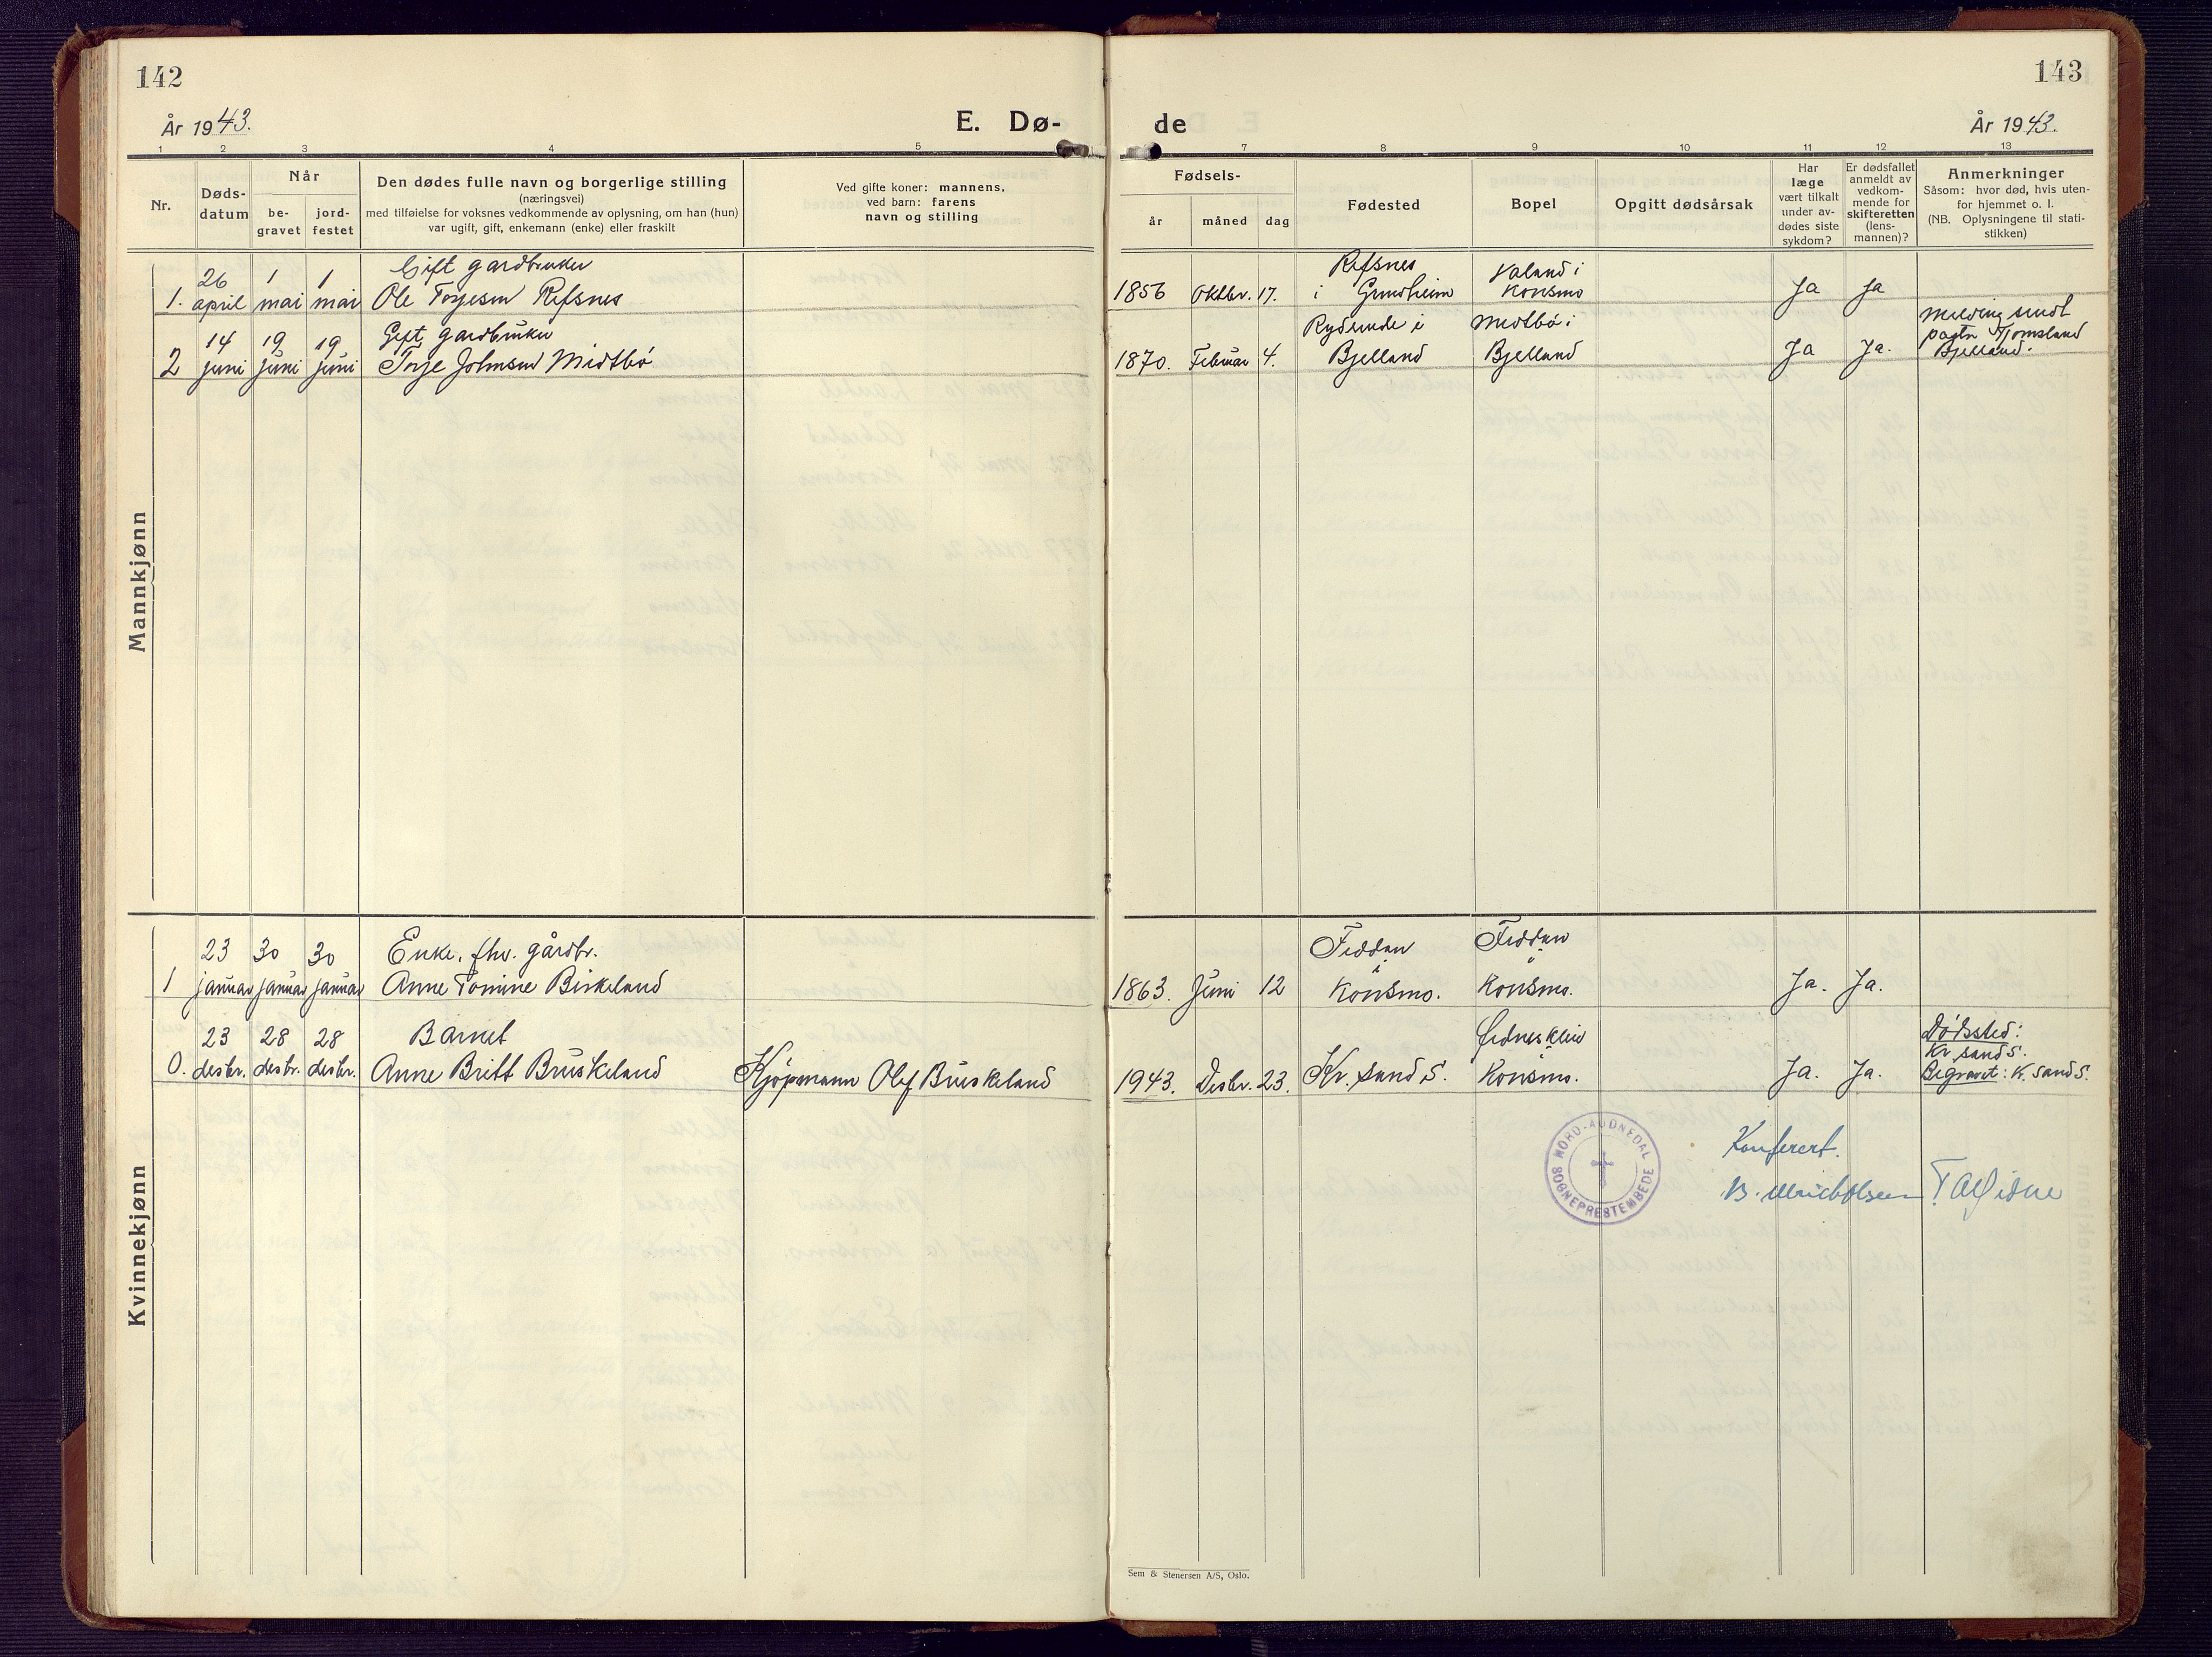 142
143
År 1943.
E. Dø-
de
År 1943.
1 2 3 4 5 7 8 9 10 11 12 13
Nr.
Døds-
datum
Når
be-
gravet
jord-
festet
Den dødes fulle navn og borgerlige stilling
(næringsvei)
med tilføielse for voksnes vedkommende av oplysning, om han (hun)
var ugift, gift, enkemann (enke) eller fraskilt
Ved gifte koner: mannens,
ved barn: farens
navn og stilling
Fødsels-
år måned dag
Fødested
Bopel
Opgitt dødsårsak
Har
læge
vært tilkalt
under av-
dødes siste
sykdom?
Er dødsfallet
anmeldt av
vedkom-
mende for
skifteretten
(lens-
mannen)?
Anmerkninger
Såsom: hvor død, hvis uten-
for hjemmet o. l.
(NB. Oplysningene til stati-
stikken)
Mannkjønn
26 1 1 Gift gardbruker Refsnes Valand i
1. april mai mai Ole Torjesen Refsnes 1856 Oktbr. 17. i Grindheim Konsmo Ja Ja
14 19 19 Gift gardbruker Rydlende i Midtbö i Melding sendt
2 juni juni juni Torje Johnsen Midtbö 1870. Februar 4. Bjelland Bjelland Ja Ja. pastor Tjomsland
Bjelland.
Kvinnekjønn
23 30 30 Enke, fhv. gårdbr. Feddan Feddan
i i
1 januar januar januar Anne Tomine Birkeland 1863. Juni 12 Konsmo. Konsmo. Ja. Ja.
23 28 28 Barnet Ødneskleiv Dødssted:
i Kr. sand S.
0. desbr. desbr. desbr. Anne Britt Bruskeland Kjöpmann Olef Bruskeland 1943. Desbr. 23. Kr. sand S. Konsmo. Ja. Ja. Begravet: K. sand S.
NORD-AUDNEDAL
SOGNEPRESTEMBEDE
Konferert.
B. Ulrich Olsen
Sem & Stenersen A/S, Oslo.